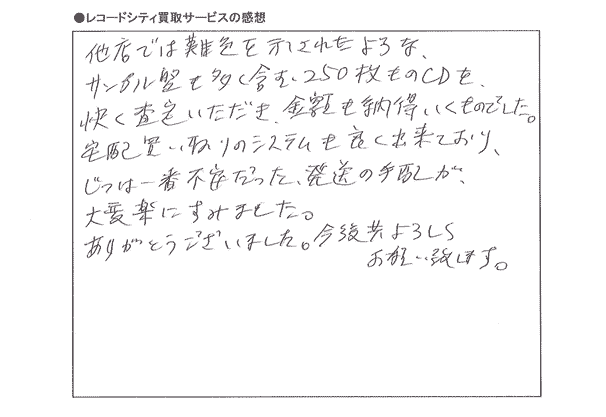 ●レコードシティ買取サービスの感想
他店では難色を示されたような、
サンプル盤も多く含む、250枚ものCDを、
快く査定いただき、金額も納得いくものでした。
宅配買い取りのシステムも良く出来ており、
じつは一番不安だった、発送の手配が、
大変楽にすみました。
ありがとうございました。今後共よろしく
お願い致します。